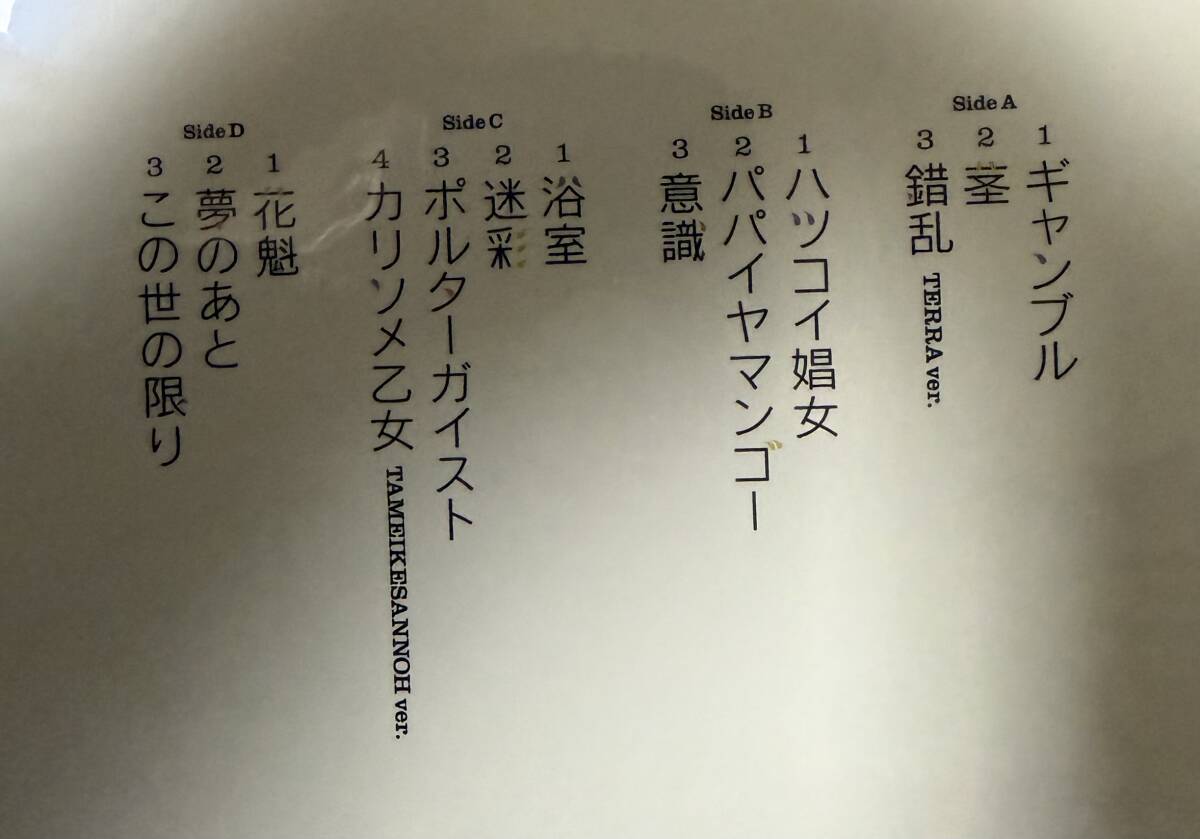 Side A
1 ギャンブル
2 茎
3 錯乱 TERRA ver.
Side B
1 ハツコイ娼女
2 パパイヤマンゴー
3 意識
Side C
1 浴室
2 迷彩
3 ポルターガイスト
4 カリソメ乙女 TAMEIKESANNOH ver.
Side D
1 花魁
2 夢のあと
3 この世の限り